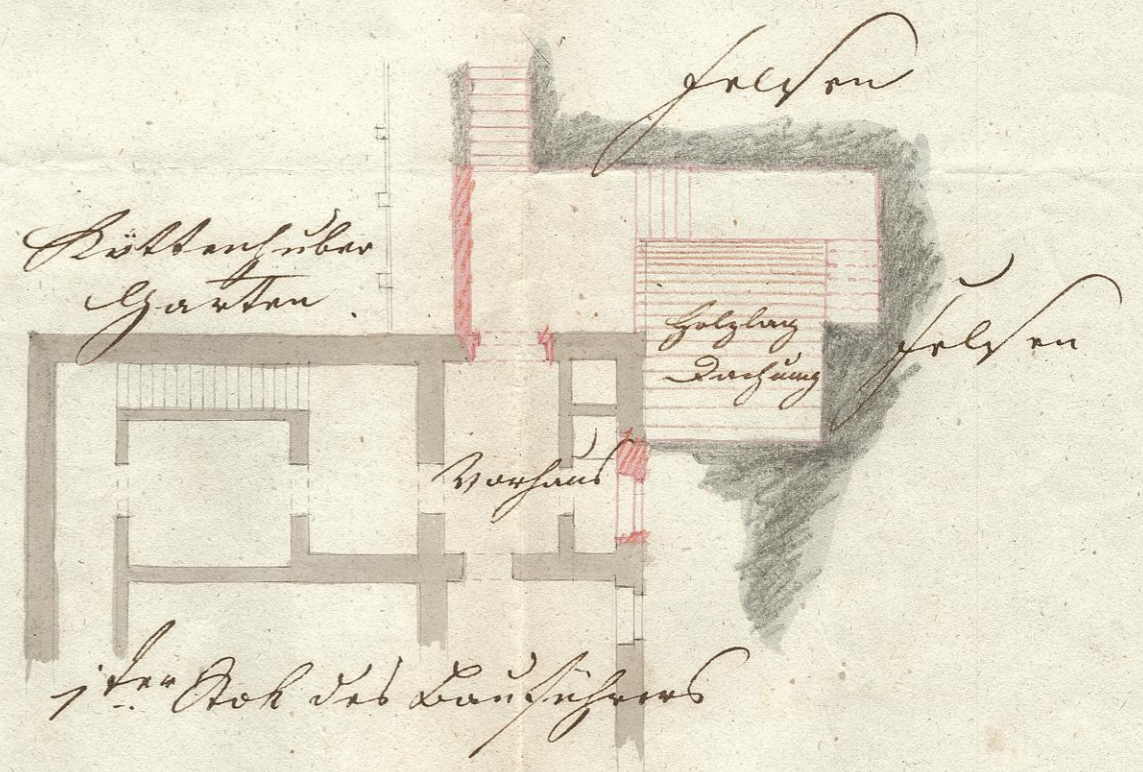 Felsen
Rottenhuber
Garten
Felsen
Holzlag
Dachung
Vorhaus
1ter Stok des Bauführers